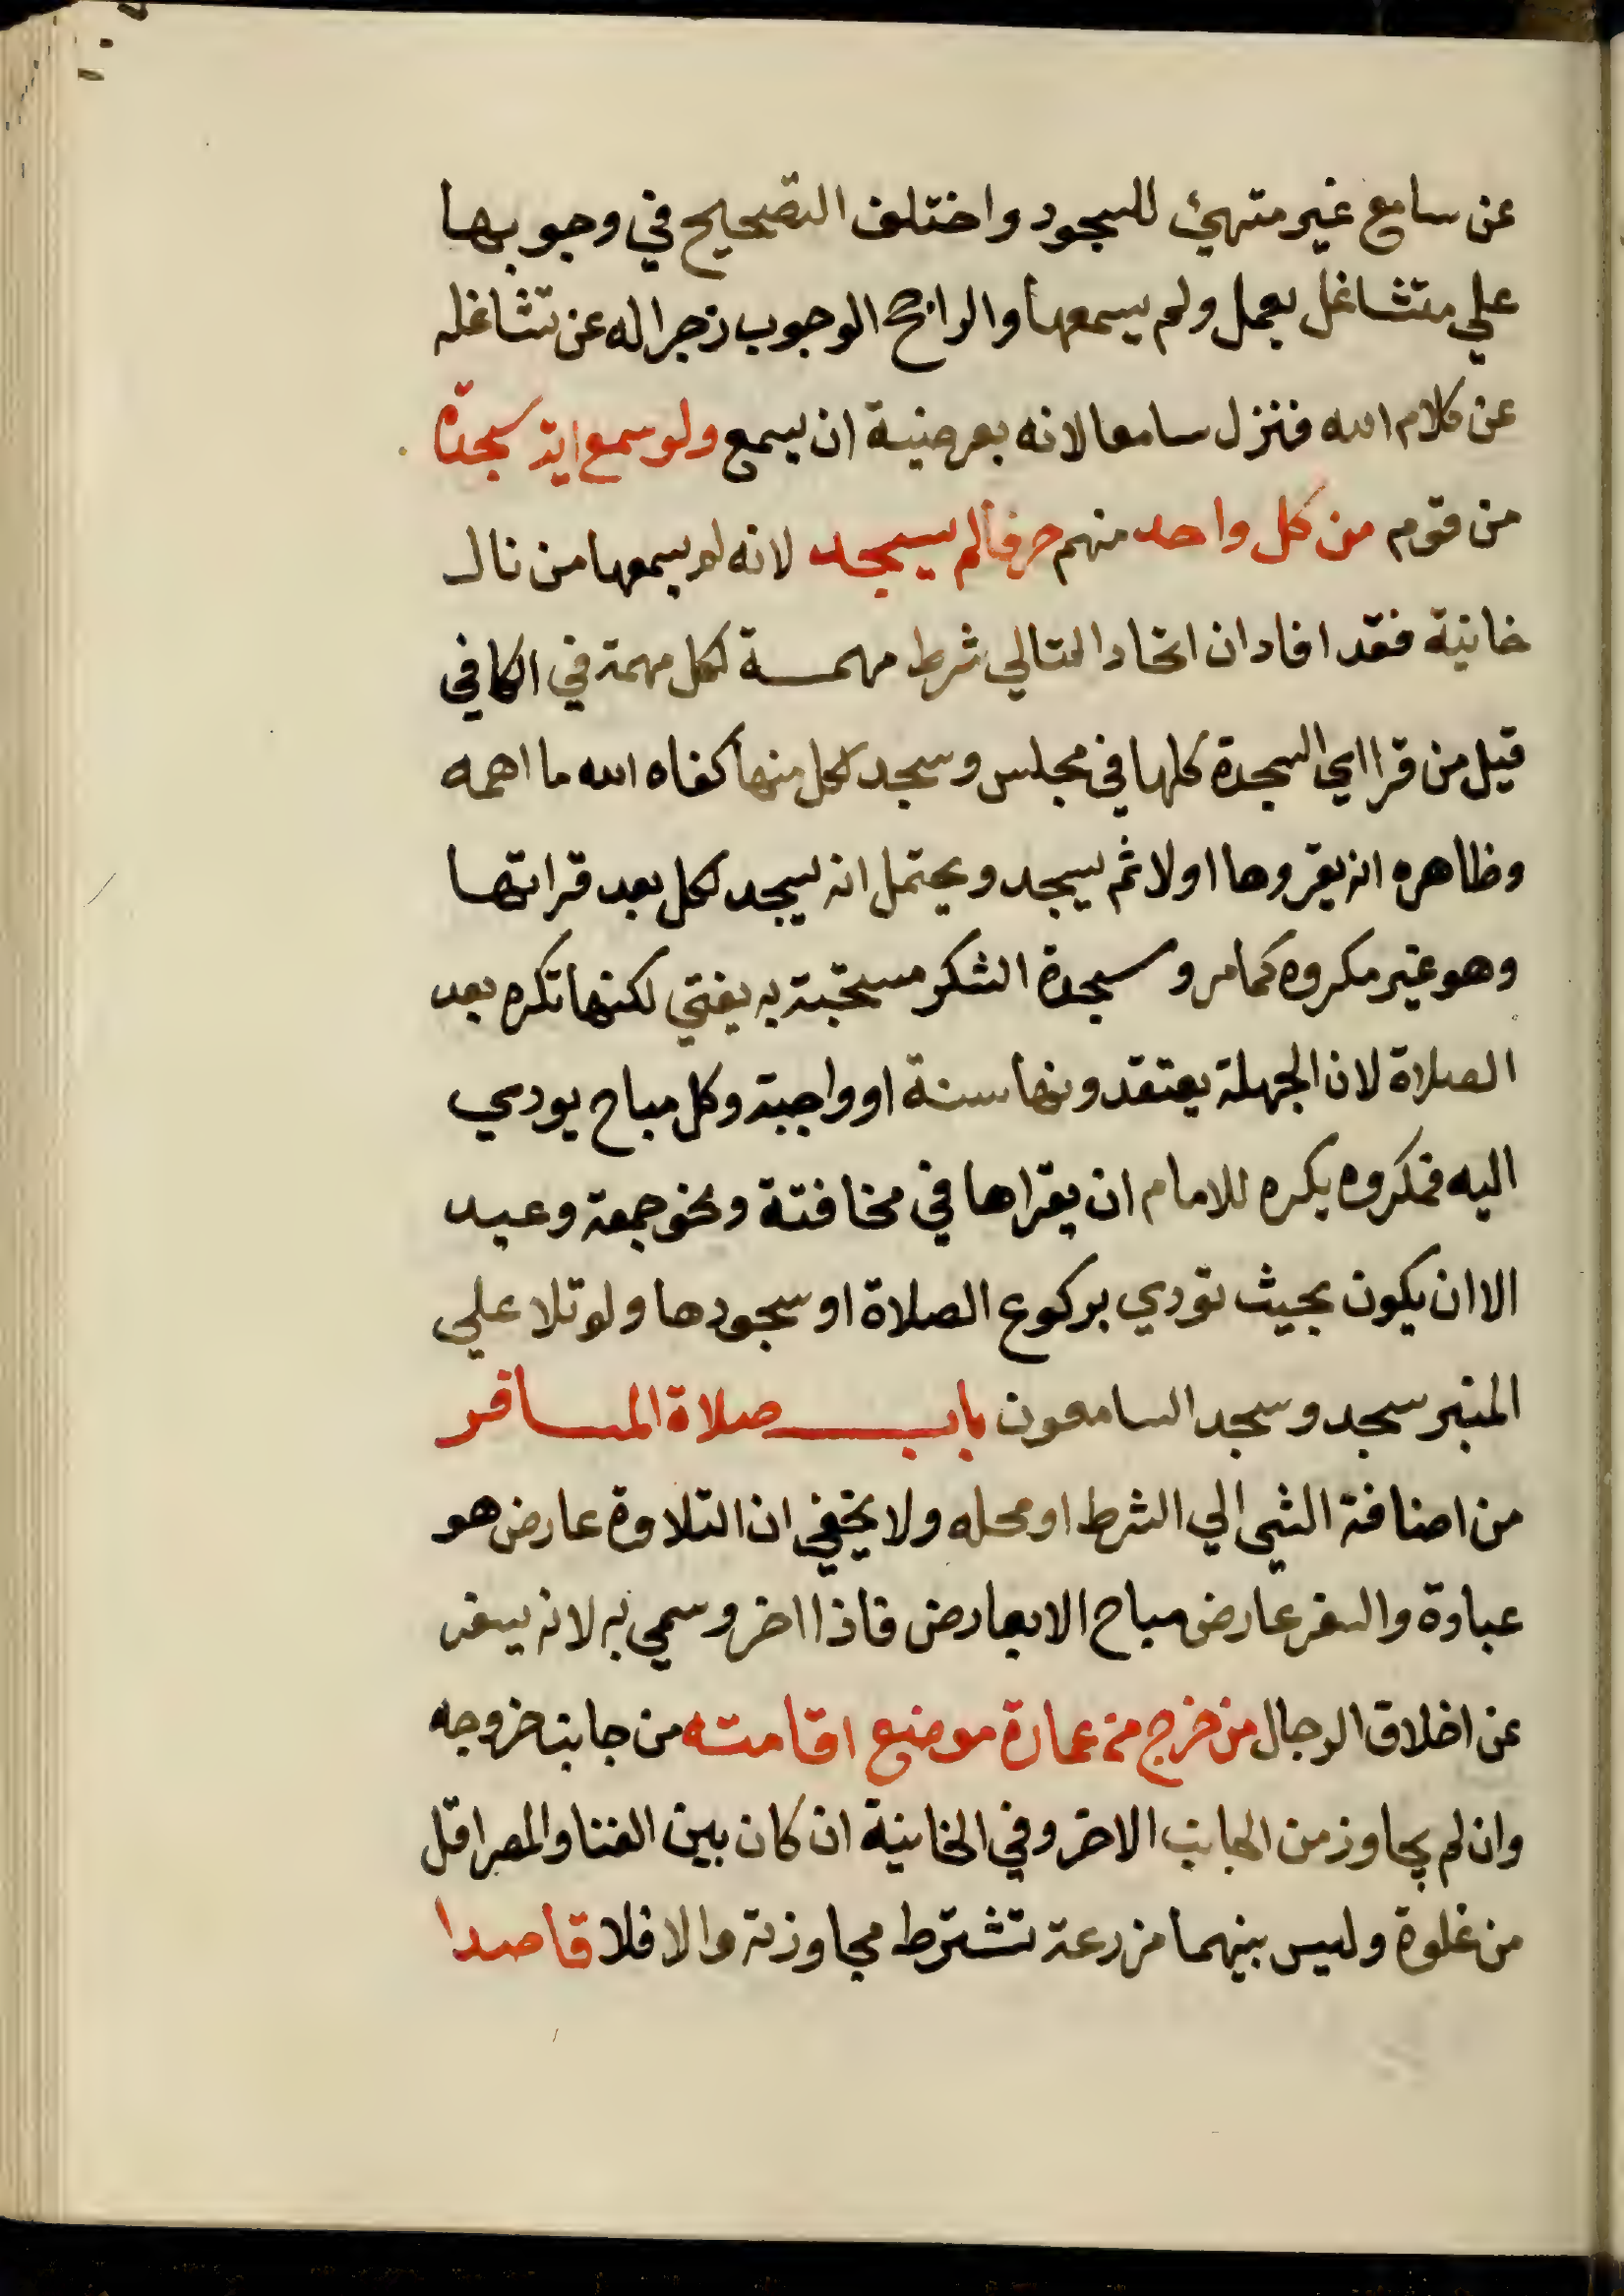 عن سامع غير متهيئ للسجود واختلف التصحيح في وجوبها
علي متشاغل بعمل ولم يسمعها والراجح الوجوب زجرا له عن تشاغله
عن كلام الله فنزل سامعا لانه بعرضية ان يسمع ولو سمع اية سجدة
من قوم من كل واحد منهم حرفا لم يسجد لانه لم يسمعها من تال
خانية فقد افاد ان اتحاد التالي شرط مهمــة لكل مهمة في الكافي
قيل من قرا اي السجدة كلها في مجلس وسجد لكل منها كفاه الله ما اهمه
وظاهره انه يقروها اولا ثم يسجد ويحتمل انه يسجد لكل بعد قراتها
وهو غير مكروه كما مر وسجدة الشكر مستحبة به يفتي لكنها تكره بعد
الصلاة لان الجهلة يعتقدونها سنة او واجبة وكل مباح يودي
اليه فمكروه يكره للامام ان يقراها في مخافتة ونحو جمعة وعيد
الا ان يكون بحيث تودي بركوع الصلاة او سجودها ولو تلا علي
المنبر سجد وسجد السامعون بــاب صلاة المسافر
من اضافة الشي الي الشرط او محله ولا يخفي ان التلاوة عارض هو
عبادة والسفر عارض مباح الا بعارض فاذا اخر وسمي به لانه يسفر
عن اخلاق الرجال من خرج من عمارة موضع اقامته من جانب خروجه
وان لم يجاوز من الجانب الاخر وفي الخانية ان كان بين الفنا والمصر اقل
من غلوة وليس بينهما مزرعة تشترط مجاوزته والا فلا قاصدا